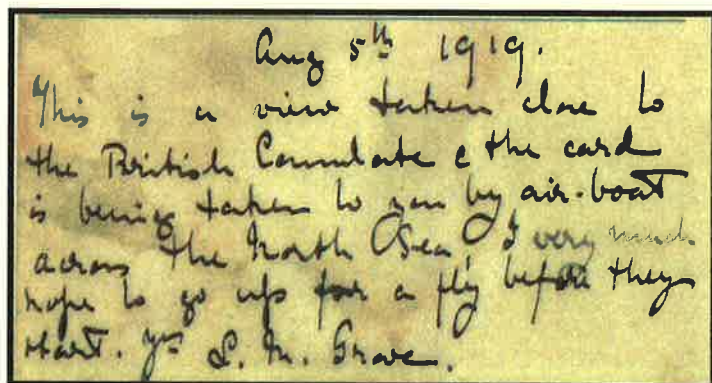 Aug 5th 1919.
This is a view taken close to
the British Consulate & the card
is being taken to you by air-boat
across the North Sea, I very much
hope to go up for a fly before they
start. yrs L. M. Grove.